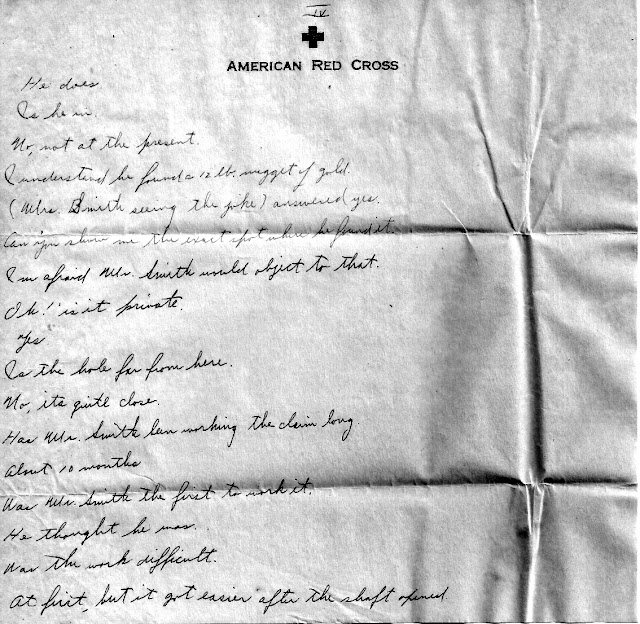 IV
AMERICAN RED CROSS
He does
Is he in.
No, not at the present.
I understand he found a 12 lb. nugget of gold.
(Mrs. Smith seeing the joke) answered yes.
Can you show me the exact spot where he found it.
I'm afraid Mr. Smith would object to that.
Oh! is it private.
Yes
Is the hole far from here.
No, its quite close.
Has Mr. Smith been working the claim long.
About 10 months
Was Mr. Smith the first to work it.
He thought he was.
Was the work difficult.
At first, but it got easier after the shaft opened